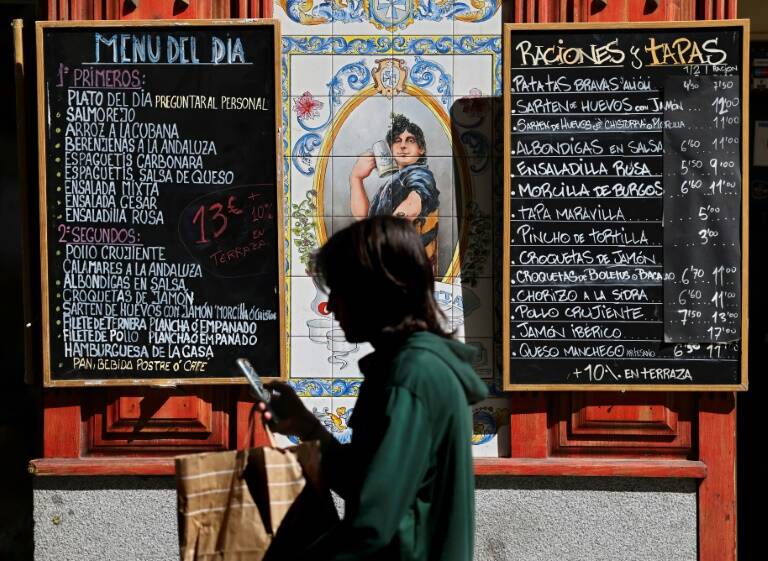 MENU DEL DIA
1º PRIMEROS:
PLATO DEL DÍA PREGUNTAR AL PERSONAL
SALMOREJO
ARROZ A LA CUBANA
BERENJENAS A LA ANDALUZA
ESPAGUETIS CARBONARA
ESPAGUETIS SALSA DE QUESO
ENSALADA MIXTA
ENSALADA CESAR
ENSALADILLA RUSA
13€ + 10% EN TERRAZA
2º SEGUNDOS:
POLLO CRUJIENTE
CALAMARES A LA ANDALUZA
ALBONDIGAS EN SALSA
CROQUETAS DE JAMÓN
SARTEN DE HUEVOS CON JAMÓN MORCILLA Ó
FILETE DE TERNERA PLANCHA Ó EMPANADO
FILETE DE POLLO PLANCHA Ó EMPANADO
HAMBURGUESA DE LA CASA
PAN, BEBIDA POSTRE Ó CAFE
RACIONES y TAPAS
1/2 RACION
PATATAS BRAVAS 4'50 7'50
SARTEN DE HUEVOS CON JAMÓN 12'00
SARTEN DE HUEVOS CON CHISTORRA Ó 11'00
ALBONDIGAS EN SALSA 6'60 11'00
ENSALADILLA RUSA 5'50 9'00
MORCILLA DE BURGOS 6'60 11'00
TAPA MARAVILLA 5'00
PINCHO DE TORTILLA 3'00
CROQUETAS DE JAMÓN
CROQUETAS DE BOLETUS Ó BACALAO 6'70 11'00
CHORIZO A LA SIDRA 6'60 11'00
POLLO CRUJIENTE 7'50 13'00
JAMÓN IBERICO 17'00
QUESO MANCHEGO 11'00
+10% EN TERRAZA